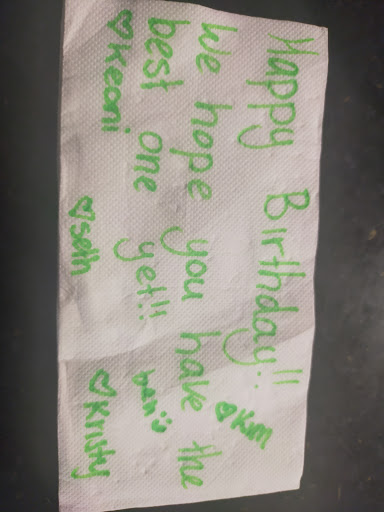 Happy Birthday!!
♡Kim
We hope you have the
best one yet!!
♡Keoni
♡Seth
♡Kristy